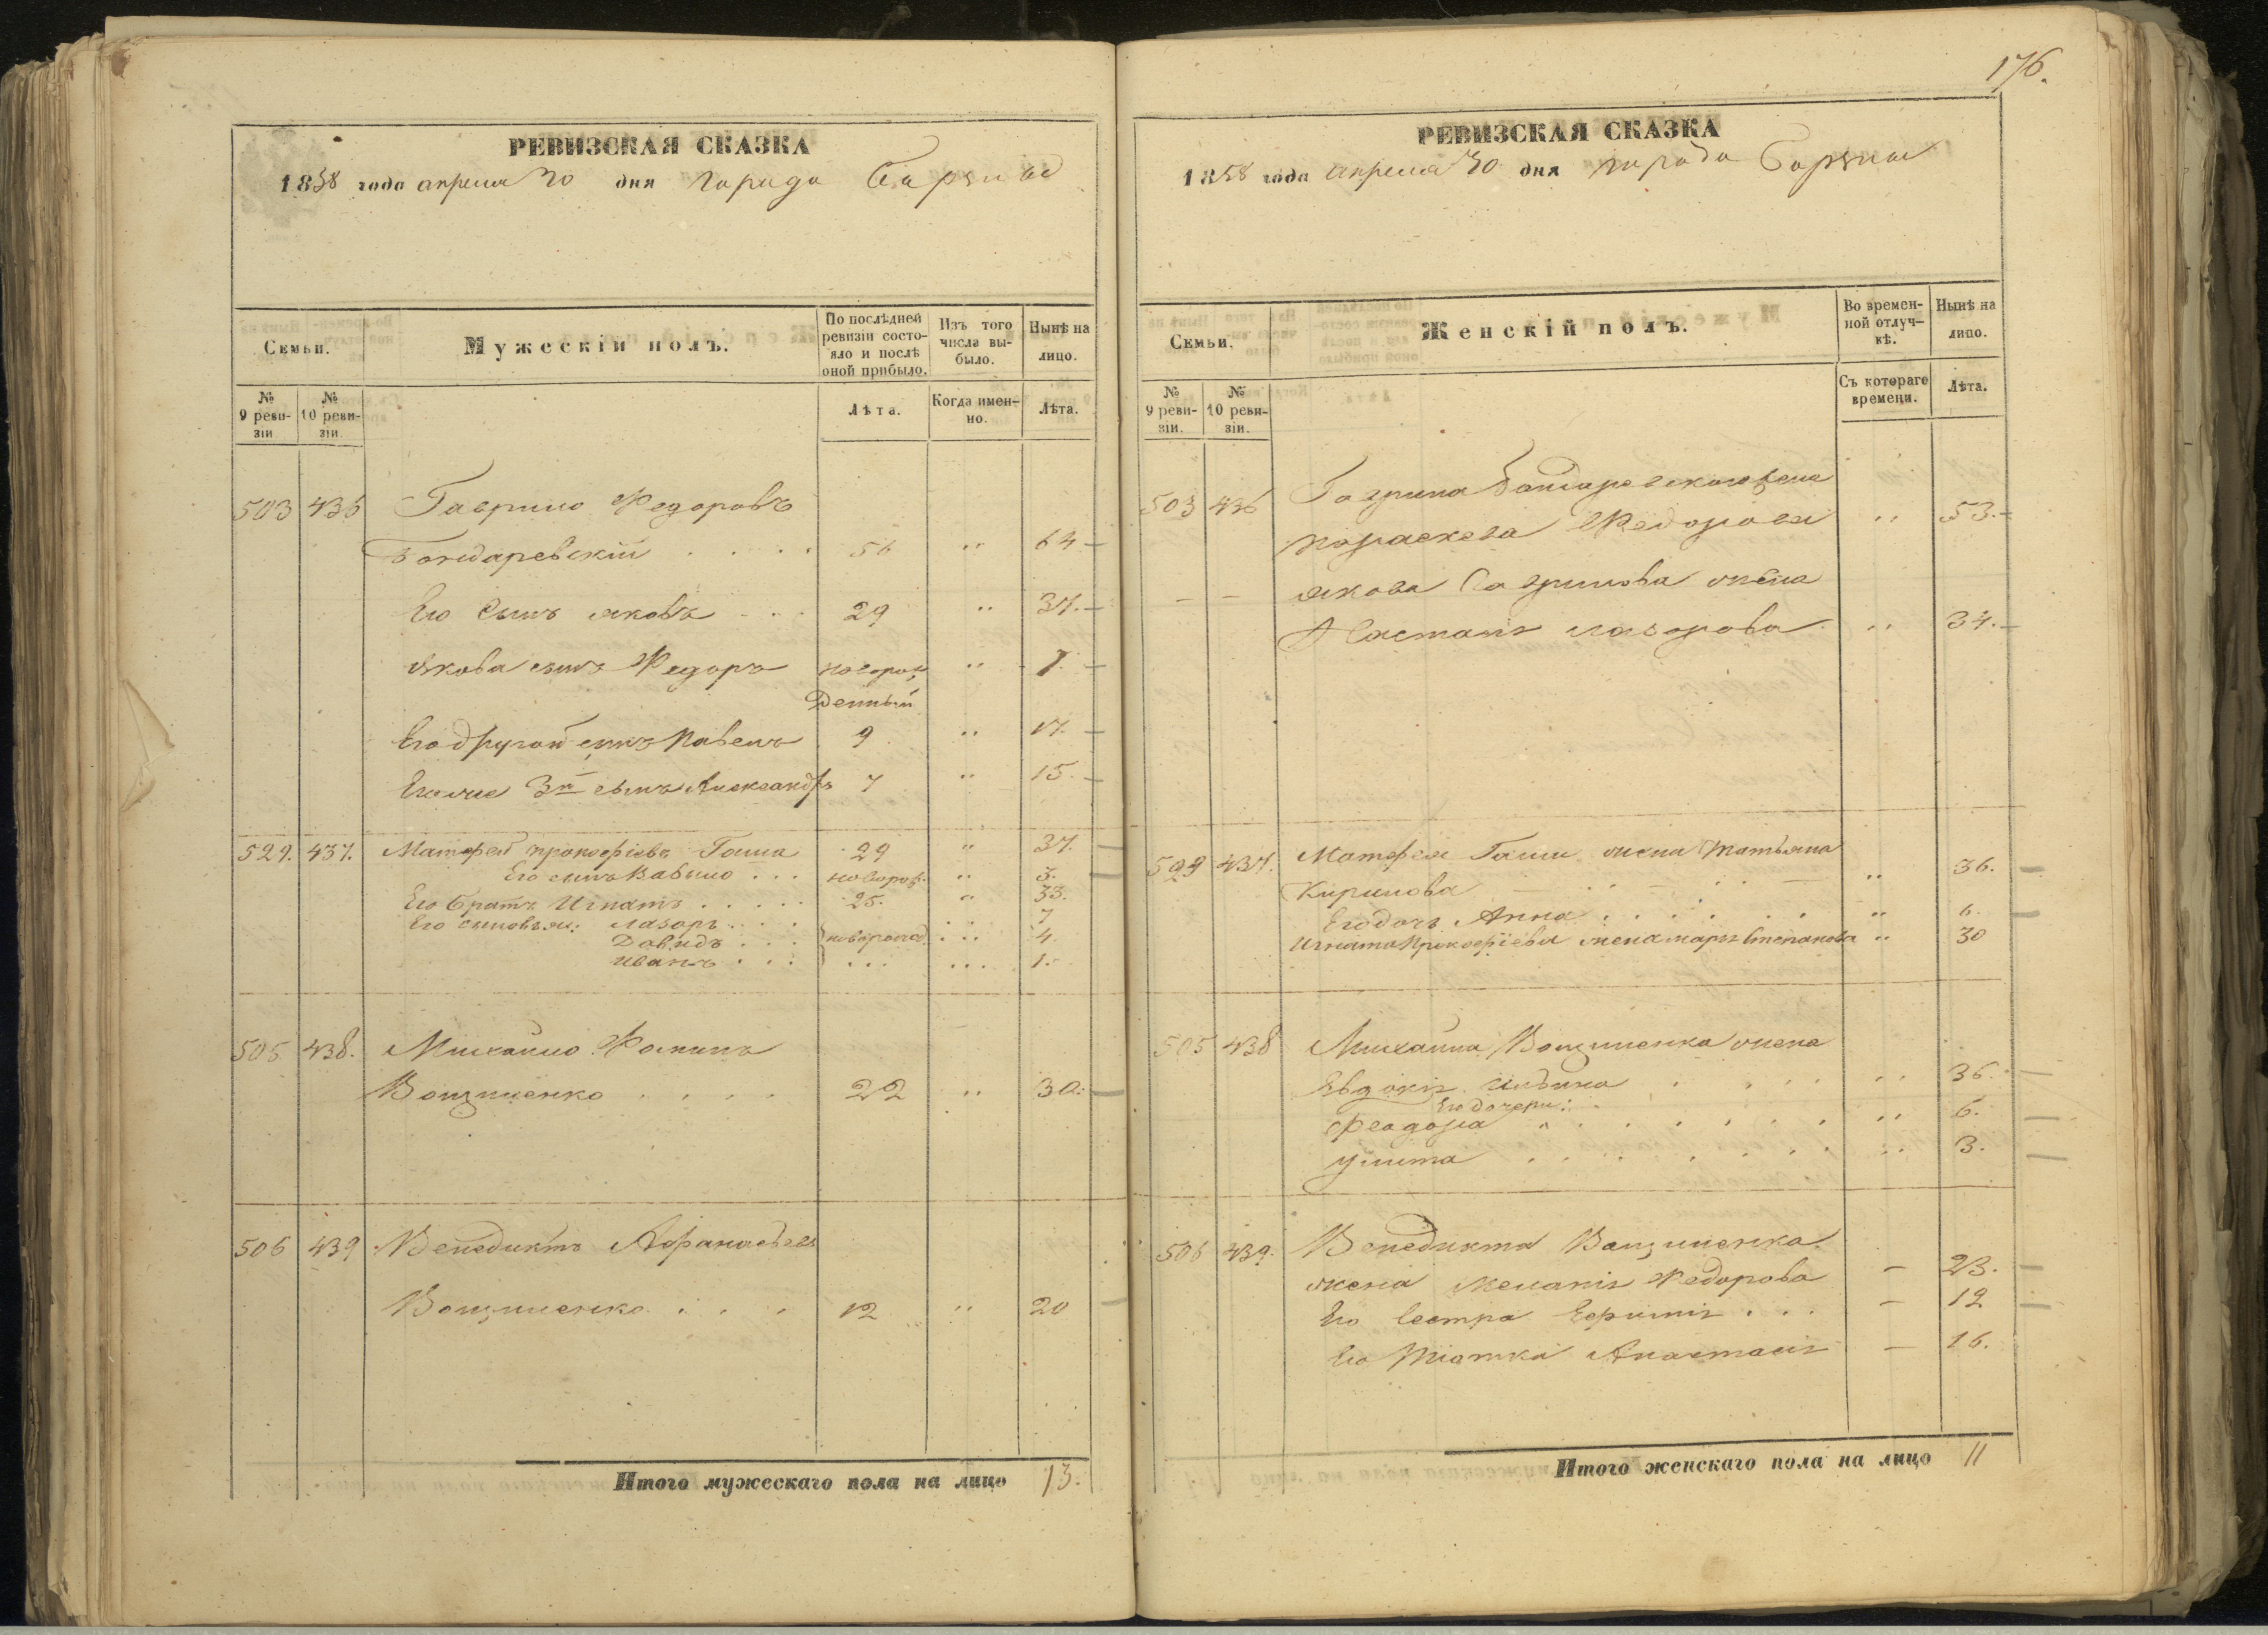 РЕВИЗСКАЯ СКАЗКА
1858 года апреля 30 дня города Борзны
Семьи.
Мужескій полъ.
По послѣдней ревизіи состояло и послѣ оной прибыло.
Изъ того числа выбыло.
Нынѣ на лицо.
№ 9 ревизіи.
№ 10 ревизіи.
Лѣта.
Когда именно.
Лѣта.
503 436 Гаврило Федоровъ
Бондаревскій . . . . 56 " 64.
Его Сынъ яковъ . . . 29 " 37.
Якова сынъ Федоръ новорож " 7.
Денный
Его другой сынъ Павелъ 9 " 17.
Его же 3й сынъ Александръ 7 " 15.
529. 437. Матфей прокофіевъ Гаша 29 " 37.
Его сынъ Вавыло . . . новорож. " 3.
Его братъ Игнатъ . . . . . 25. " 33.
Его сыновья: лазоръ . . . 7
Давидъ . . . новорожд. . . . 4.
иванъ . . . . . . . . . 1.
505 438. Михайло Фоминъ
Вощиленко . . . . 22 " 30.
506 439 Венедиктъ Афанасьевъ
Вощиленко . . . 12 " 20
Итого мужескаго пола на лицо 13.
176.
РЕВИЗСКАЯ СКАЗКА
1858 года апреля 30 дня города Борзны
Семьи.
Женскій полъ.
Во временной отлучкѣ.
Нынѣ на лицо.
№ 9 ревизіи.
№ 10 ревизіи.
Съ котораго времени.
Лѣта.
503 436 Гаврила Бондаревского жена
параскева Федорова " 53.
— — якова Гаврилова жена
Настасія лазорова " 34.
529 437. Матфея Гаши жена Татьяна
Кирилова " 36.
Его дочь Анна . . . . . . " 6.
Игната Прокофіева жена марія Степанова " 30
505 438 Михайла Вощиленка жена
Евдокія Ильина . . . . " 36.
Его дочери:
Феодора . . . . . . . " 6.
улита . . . . . . . " 3.
506 439. Венедикта Вощиленка
жена меланія Федорова — 23.
Его Сестра Ефимія . . . — 12
Его тіотка Анастасія — 16.
Итого женскаго пола на лицо 11